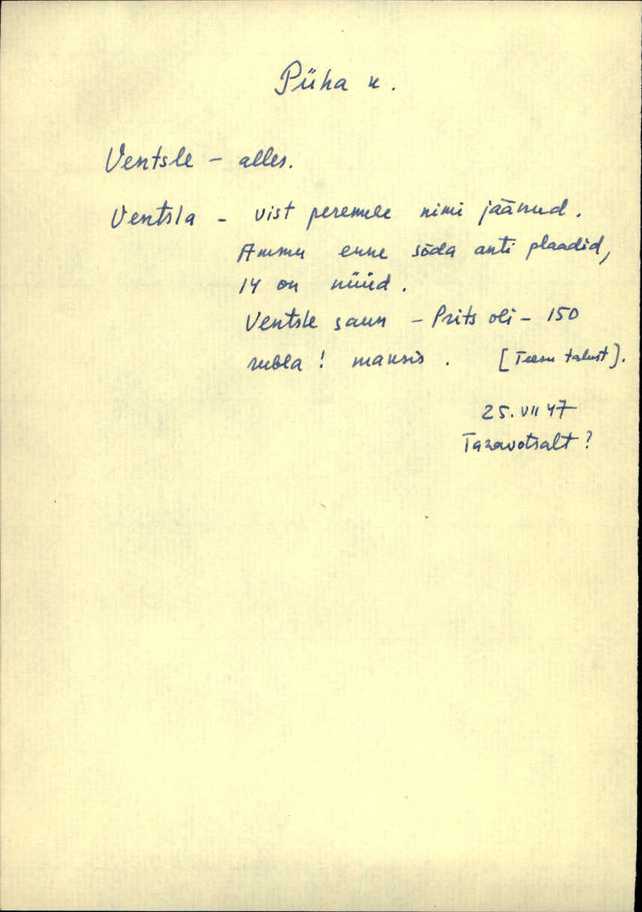 Püha k.
Ventsle - alles.
Ventsla - vist peremele nimi jäänud.
Ammu enne sõda anti plaadid,
14 on nüüd.
Ventsle saun - Prits oli - 150
rubla! maksis. [Teesu talust].
25. VII 47
Taravotsalt?